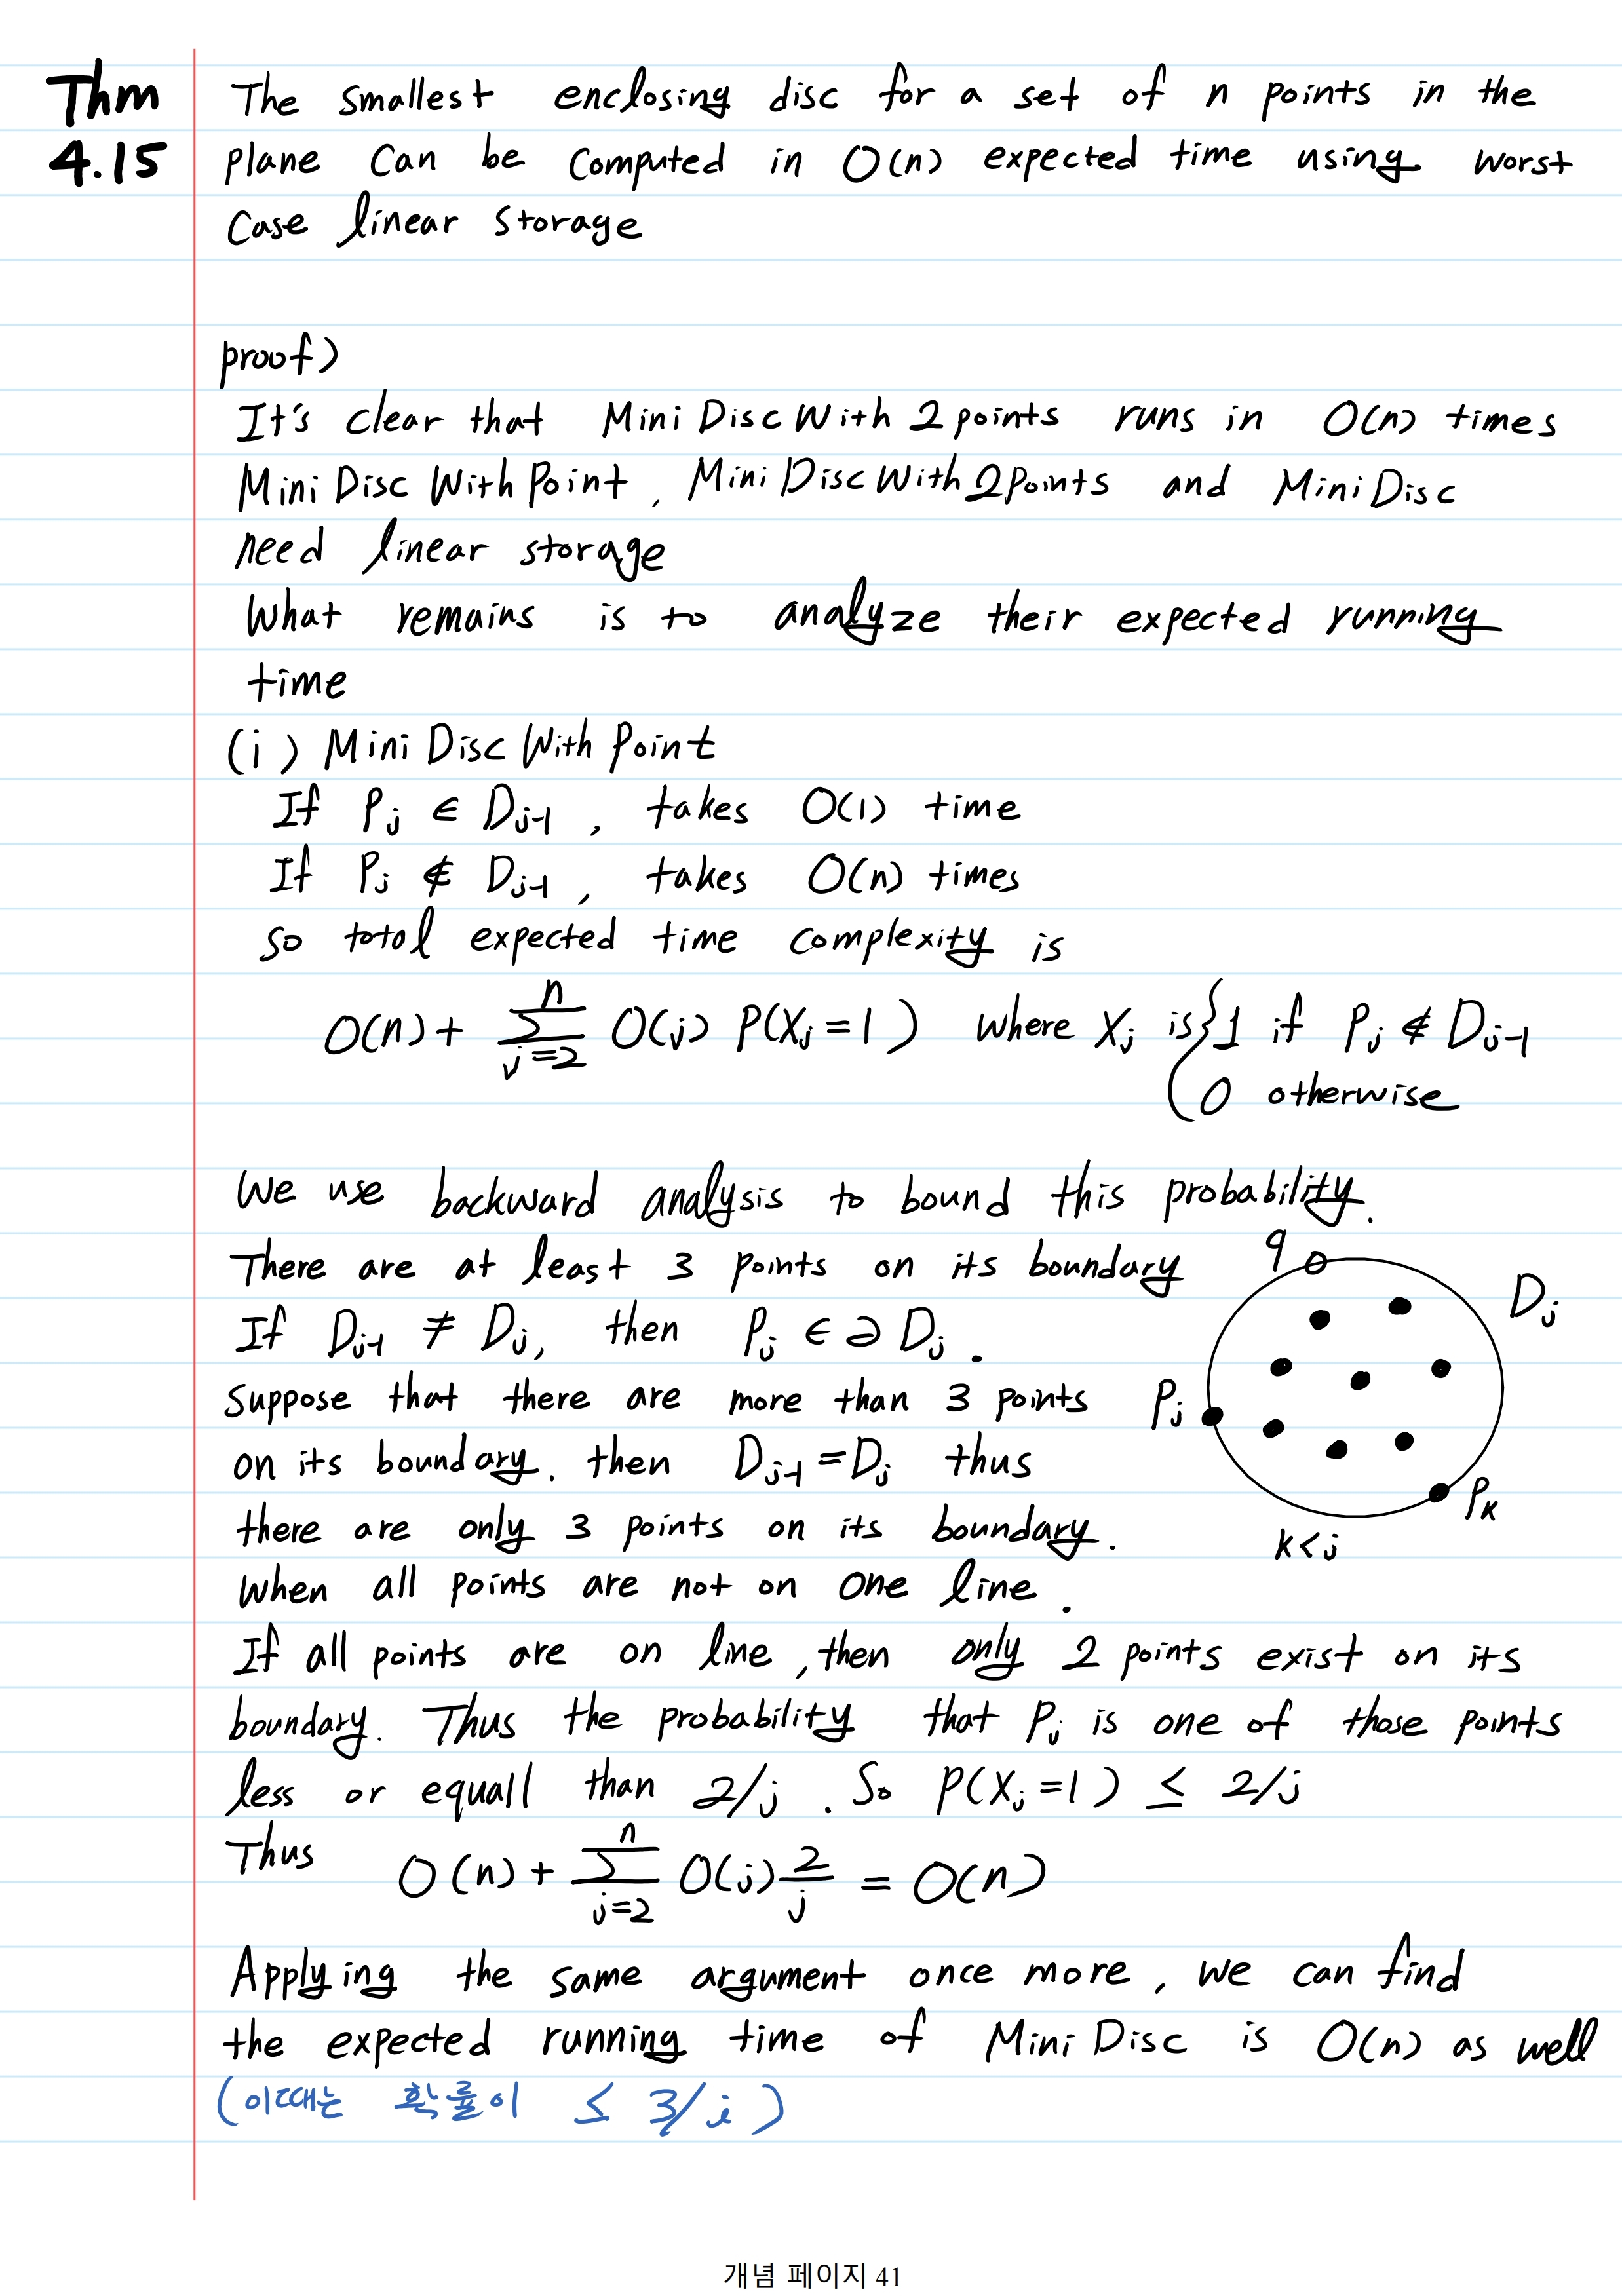 Thm
4.15
The smallest enclosing disc for a set of n points in the
plane can be computed in O(n) expected time using worst
case linear storage
proof)
It's clear that MiniDiscWith2points runs in O(n) times
MiniDiscWithPoint, MiniDiscWith2Points and MiniDisc
need linear storage
What remains is to analyze their expected running
time
(i) MiniDiscWithPoint
If Pj ∈ Dj-1, takes O(1) time
If Pj ∉ Dj-1, takes O(n) times
so total expected time complexity is
O(n) + ∑_{j=2}^{n} O(j) P(Xj = 1) where Xj is { 1 if Pj ∉ Dj-1
0 otherwise
We use backward analysis to bound this probability.
There are at least 3 points on its boundary
If Dj-1 ≠ Dj, then Pj ∈ ∂Dj.
Suppose that there are more than 3 points
on its boundary. then Dj-1 = Dj thus
there are only 3 points on its boundary.
when all points are not on one line.
q
Dj
Pj
Pk
k<j
If all points are on line, then only 2 points exist on its
boundary. Thus the probability that Pj is one of those points
less or equall than 2/j. So P(Xj = 1) ≤ 2/j
Thus O(n) + ∑_{j=2}^{n} O(j) 2/j = O(n)
Applying the same argument once more, we can find
the expected running time of MiniDisc is O(n) as well
(이때는 확률이 ≤ 3/i)
개념 페이지 41